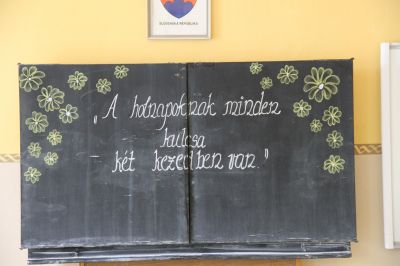 SLOVENSKÁ REPUBLIKA
„A holnapoknak minden
kulcsa
két kezedben van.”